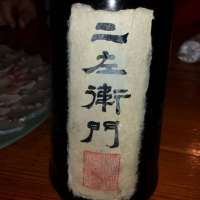 二左衛門